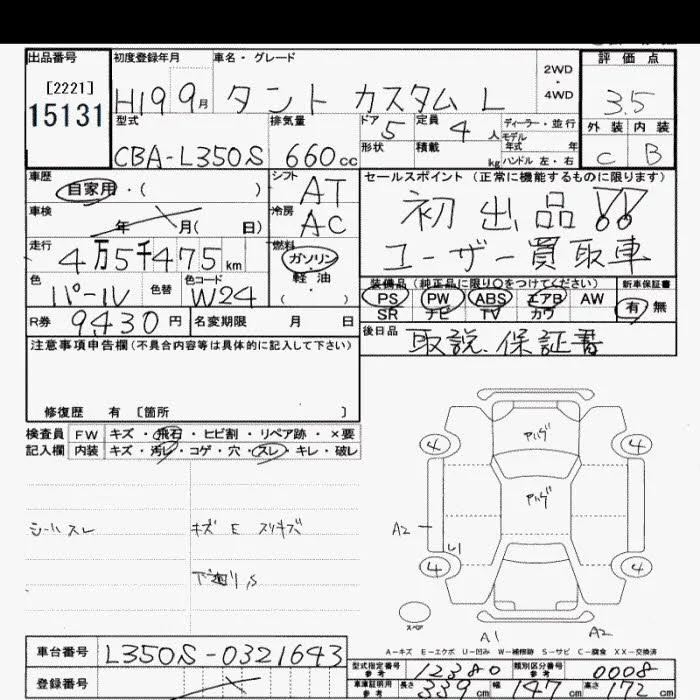 出品番号 初度登録年月 車名・グレード 評価点
[2221]
15131
H19 9月 タント カスタム L 2WD・4WD 3.5
型式 排気量 ドア 定員 ディーラー・並行 外装 内装
CBA-L350S 660cc 5 4人 モデル年式 年 C B
形状 積載 kg ハンドル 左・右
車歴 シフト セールスポイント (正常に機能するものに限ります)
自家用・( ) AT 初出品!!
車検 冷房
年 月( 日) AC ユーザー買取車
走行 燃料
4万5千475km ガソリン・軽油 ( )
色 色替 色コード 装備品 (純正品に限り○をつけてください) 新車保証書
パール W24 PS PW ABS エアB AW 有・無
SR ナビ TV カワ
R券 9,430円 名変期限 月 日 後日品 取説、保証書
注意事項申告欄(不具合内容等は具体的に記入して下さい)
修復歴 有 [箇所 ]
検査員 FW キズ・飛石・ヒビ割・リペア跡・×要
記入欄 内装 キズ・汚レ・コゲ・穴・スレ・キレ・破レ
アハゲ
4 4
アハゲ
シールスレ キズ E スリキズ A2
4 4
下廻りS
スペア
A1 A2
A-キズ E-エクボ U-凹み W-補修跡 S-サビ C-腐食 XX-交換済
車台番号 L350S-0321643
型式指定番号 参考 12380 類別区分番号 参考 0008
登録番号
車庫証明用 参考 長さ 339cm 幅 147cm 高さ 172cm